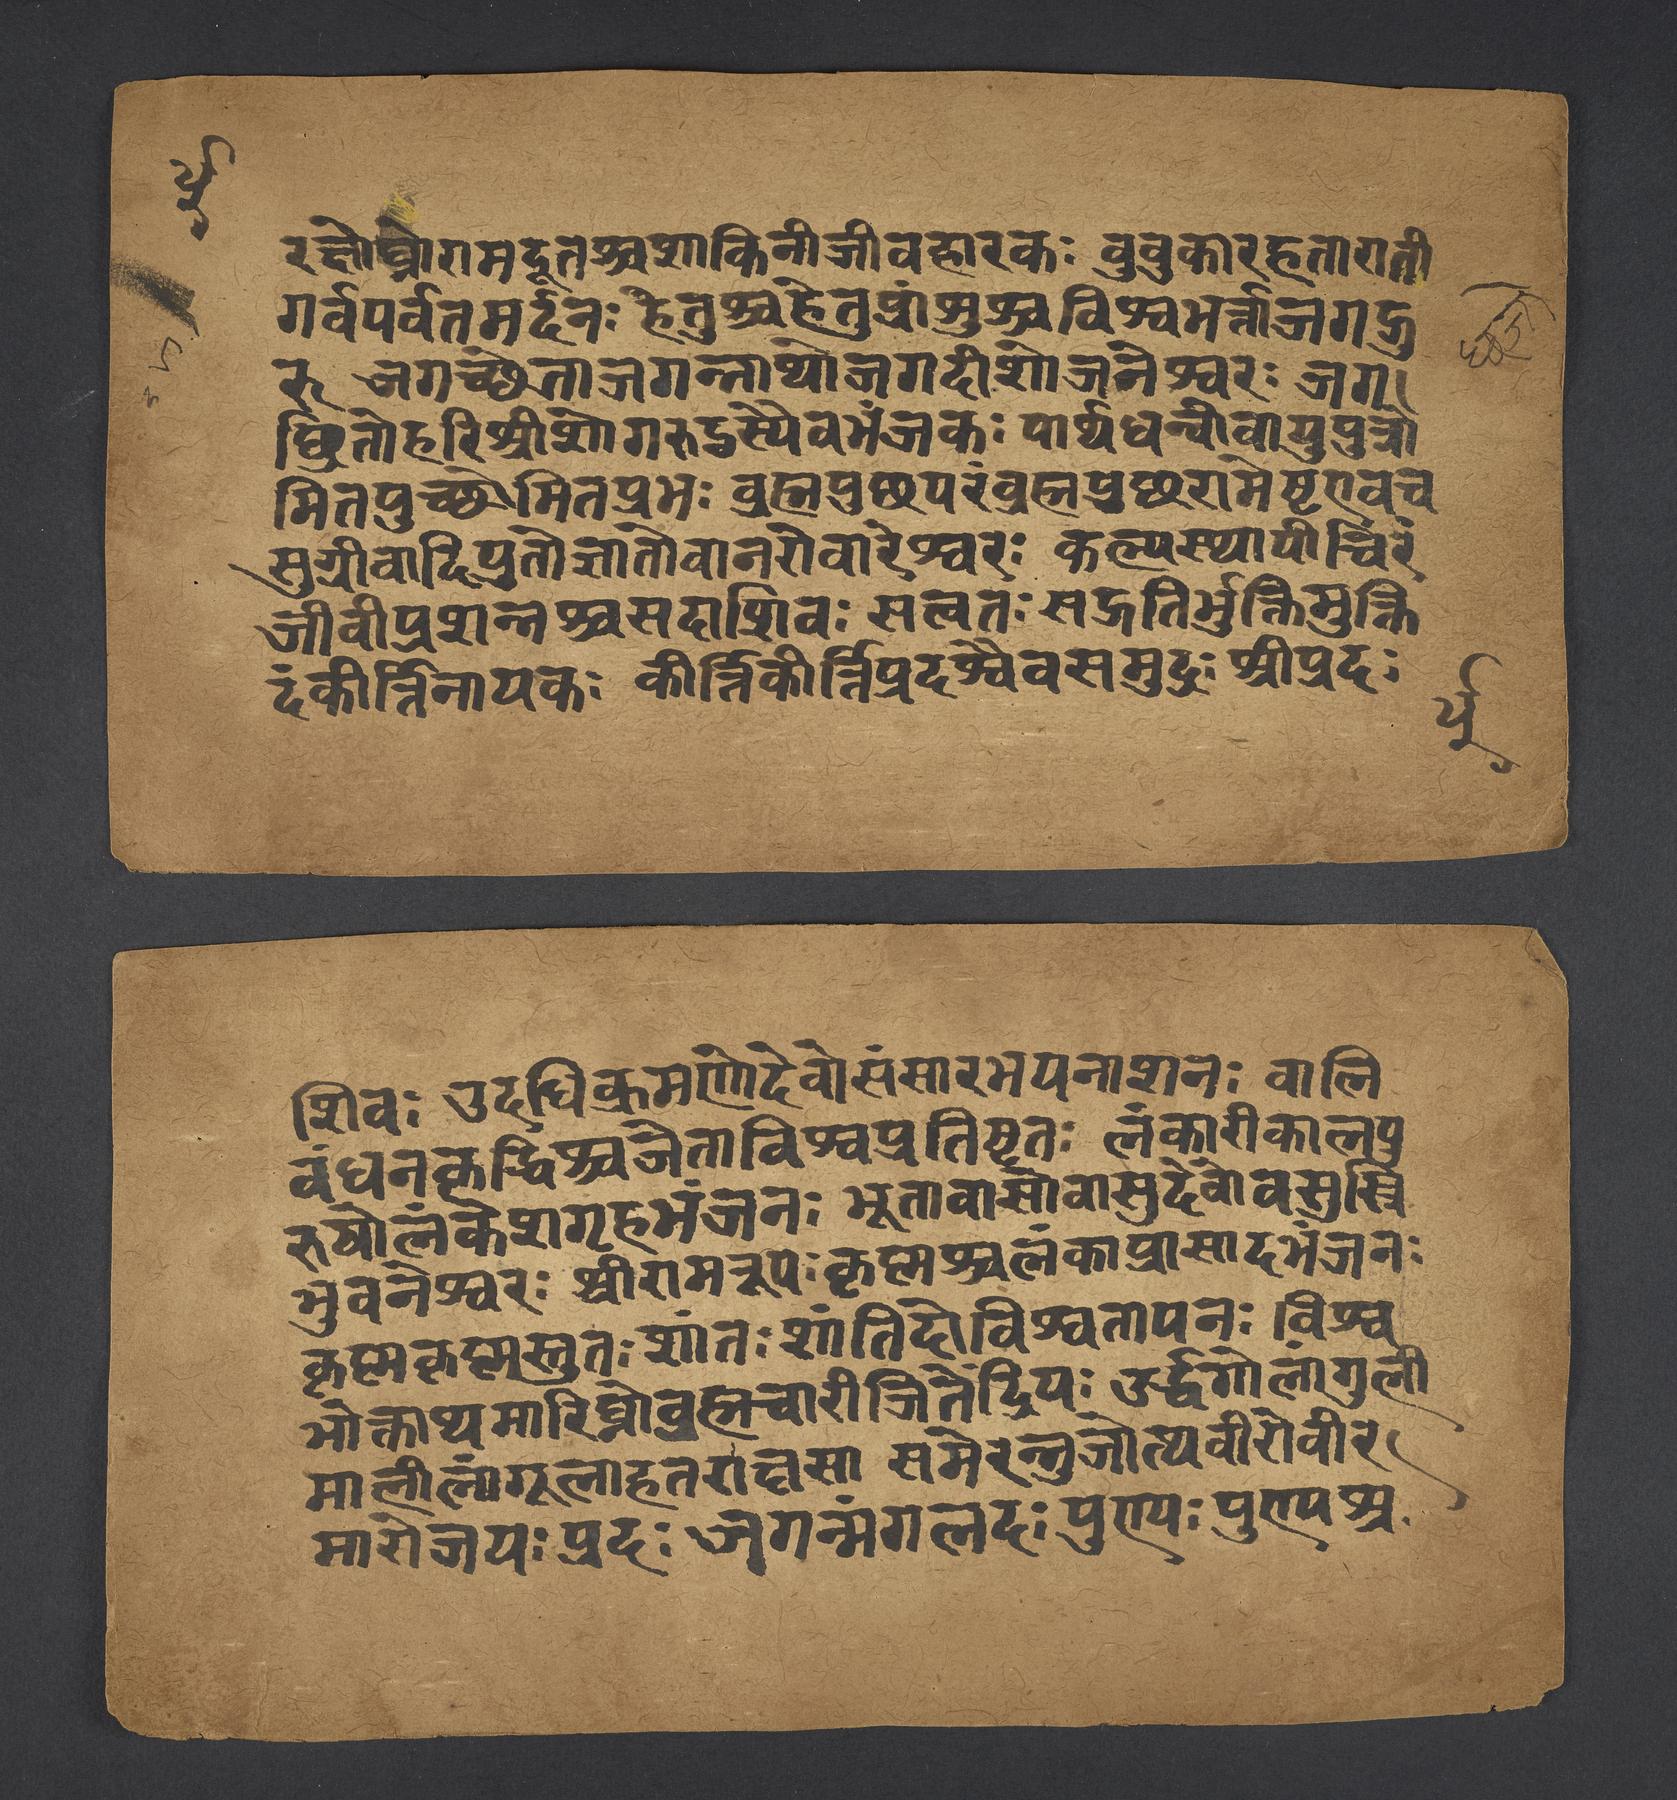 रक्षोघ्नोरामदूतश्चशाकिनीजीवहारकः वुवुकारहताराती
गर्वपर्वतमर्द्दनः हेतुश्चहेतुप्रांशुश्चविश्वभर्त्ताजगद्गु
रु जगच्छेताजगन्नाथोजगदीशोजनेश्वरः जग
छ्रितोहरिश्रीशोगरुडस्यैवभंजकः पार्थधन्वीवायुपुत्रो
मितपुच्छोमितप्रभः व्रह्मपुछपरंव्रह्मप्रुछरामेष्टएवच
सुग्रीवादिपुतोज्ञातोवानरोवारेश्वरः कल्पस्थायीचिरं
जीवीप्रशन्तश्चसदाशिवः सत्वतः सद्गतिर्भुक्तिमुक्ति
दंकीर्त्तिनायकः कीर्त्तिकीर्त्तिप्रदश्चैवसमुद्रः श्रीप्रदः
शिवः उदधिक्रमणोदेवोसंसारभयनाशनः वालि
वंधनकृद्विश्वजेताविश्वप्रतिष्टतः लंकारीकालपु
रुषोलंकेशगृहभंजनः भूतावासोवासुदेवोवसुस्त्रि
भुवनेश्वरः श्रीरामरूपः कृष्मश्चलंकाप्रासादभंजनः
कृष्मकृष्मस्तुतः शांतः शांतिदोविश्वतापनः विश्व
भोक्ताथमारिघ्नोव्रह्मचारीजितेंद्रियः उर्द्धगोलांगुली
मालीलांगूलाहतराक्षसा समेरन्तुजोत्थवीरोवीर
मारोजयः प्रदः जगन्मंगलदः पुण्यः पुण्यश्र